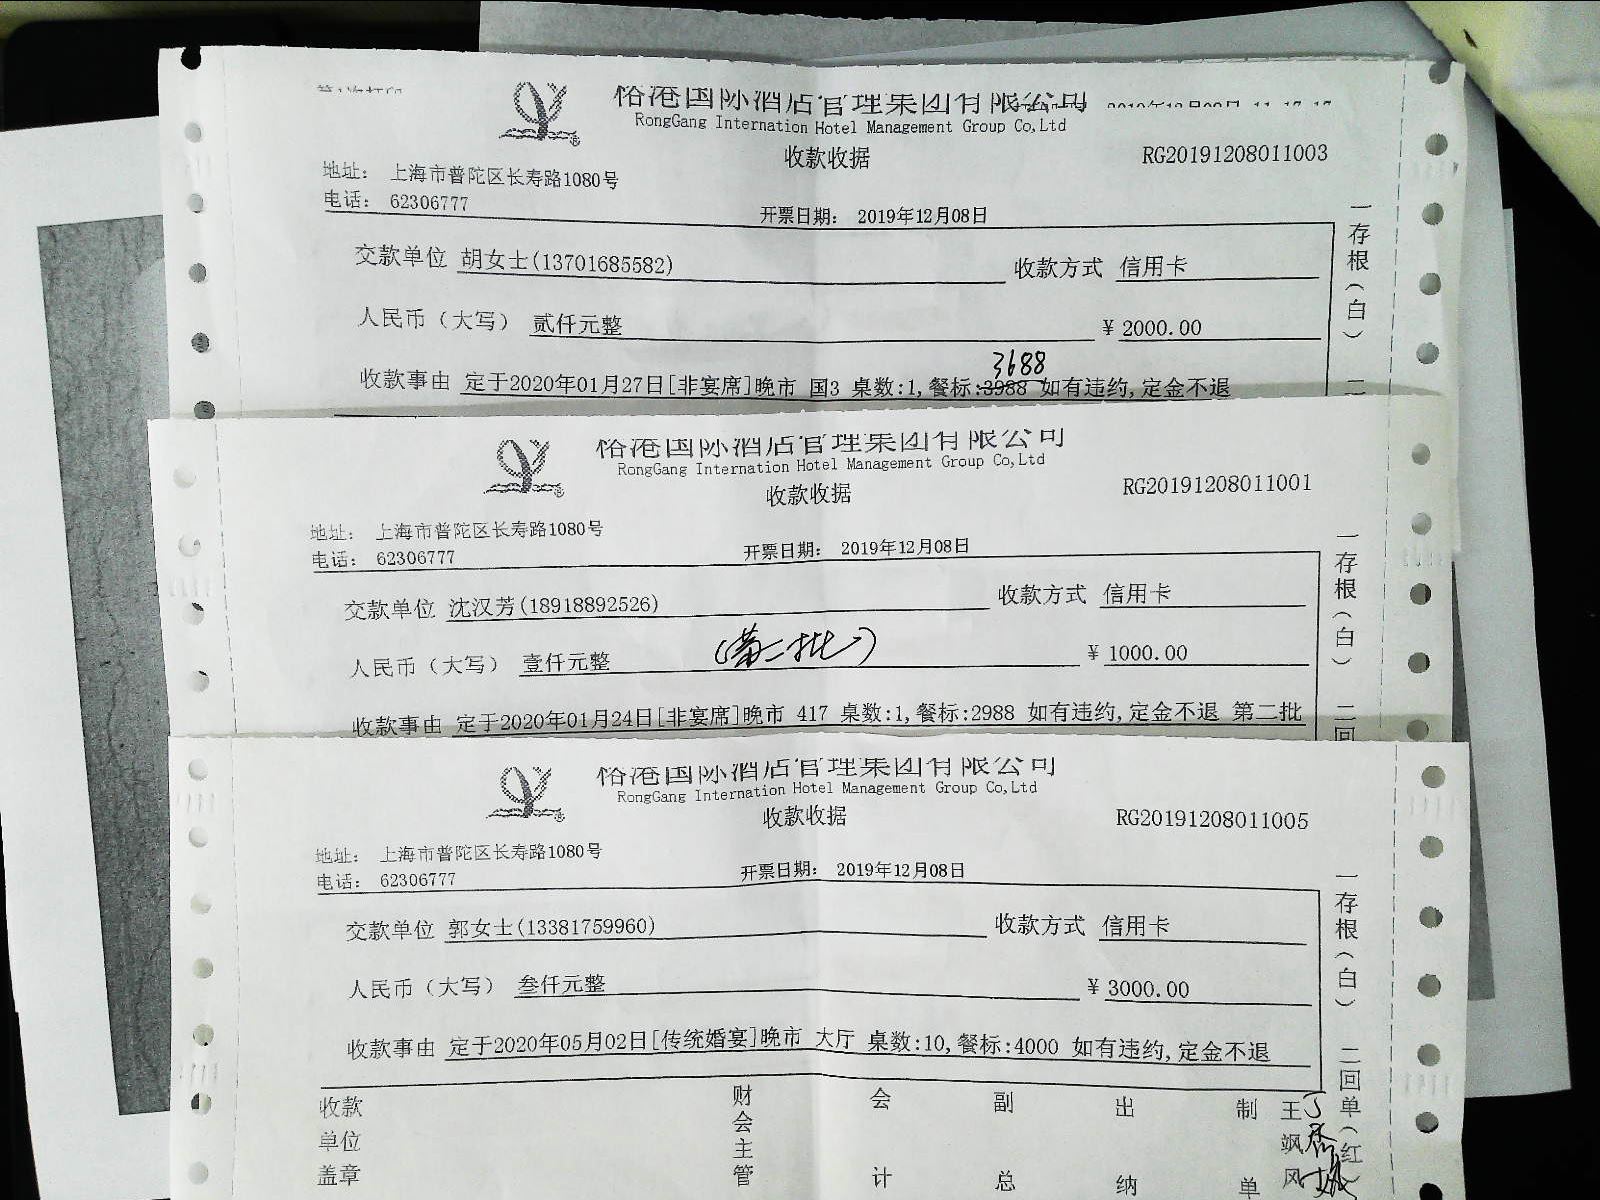 第1次打印
裕港国际酒店管理集团有限公司
RongGang Internation Hotel Management Group Co,Ltd
收款收据
RG20191208011003
地址： 上海市普陀区长寿路1080号
电话： 62306777
开票日期： 2019年12月08日
交款单位 胡女士(13701685582) 收款方式 信用卡
人民币（大写） 贰仟元整 ￥2000.00
3688
收款事由 定于2020年01月27日[非宴席]晚市 国3 桌数:1,餐标:3988 如有违约,定金不退
一存根（白）
裕港国际酒店管理集团有限公司
RongGang Internation Hotel Management Group Co,Ltd
收款收据
RG20191208011001
地址： 上海市普陀区长寿路1080号
电话： 62306777
开票日期： 2019年12月08日
交款单位 沈汉芳(18918892526) 收款方式 信用卡
人民币（大写） 壹仟元整 （第二批） ￥1000.00
收款事由 定于2020年01月24日[非宴席]晚市 417 桌数:1,餐标:2988 如有违约,定金不退 第二批
一存根（白）
二回
裕港国际酒店管理集团有限公司
RongGang Internation Hotel Management Group Co,Ltd
收款收据
RG20191208011005
地址： 上海市普陀区长寿路1080号
电话： 62306777
开票日期： 2019年12月08日
交款单位 郭女士(13381759960) 收款方式 信用卡
人民币（大写） 叁仟元整 ￥3000.00
收款事由 定于2020年05月02日[传统婚宴]晚市 大厅 桌数:10,餐标:4000 如有违约,定金不退
一存根（白）
二回单（红
收款单位盖章
财会主管
会计
副总
出纳
制单
王飒风